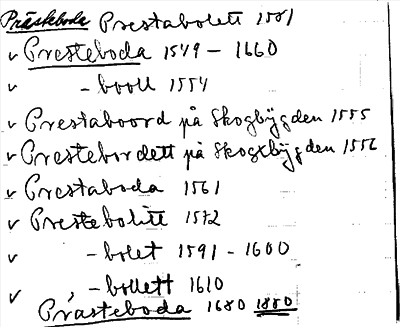 Präskeboda Prestabolett 1551
✓ Presteboda 1549 - 1660
✓ - booll 1554
✓ Prestaboord på Skogbÿgden 1555
✓ Prestebordett på Skogxbÿgden 1556
✓ Prestaboda 1561
✓ Prestebolitt 1572
✓ - bolet 1591 - 1600
✓ , - bollett 1610
Prästeboda 1680 1880